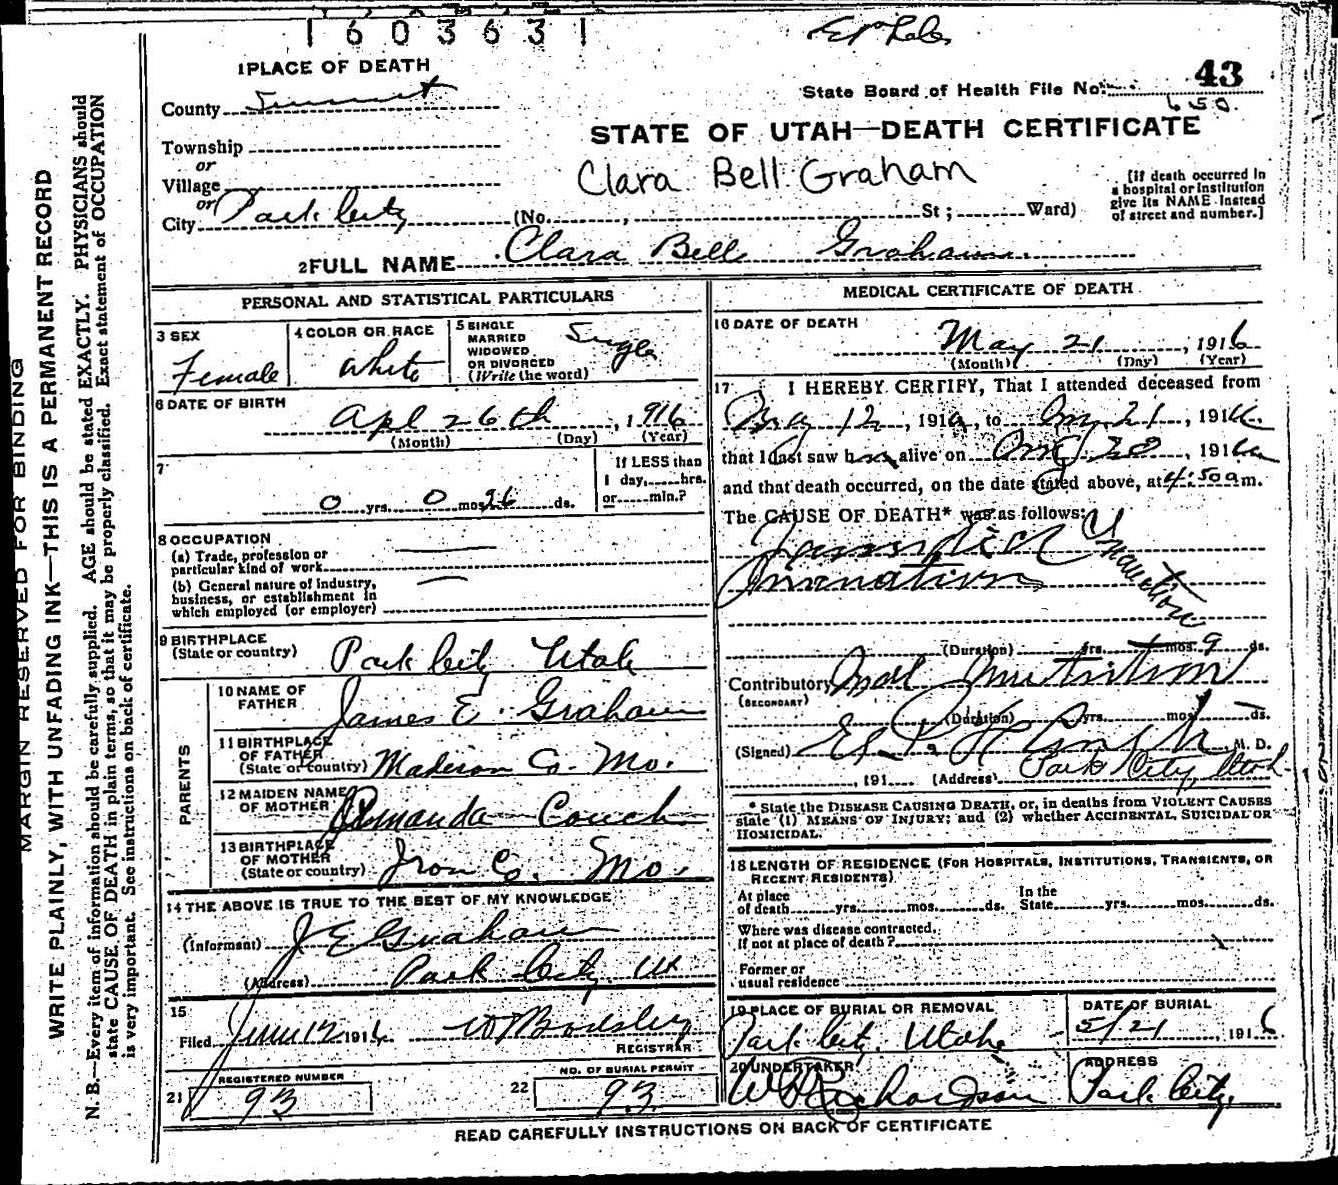 1603631
43
State Board of Health File No.
650.
1 PLACE OF DEATH
County Summit
STATE OF UTAH—DEATH CERTIFICATE
Township
or
Village
or
City Park City
Clara Bell Graham
(No. , St ; Ward)
[If death occurred in
a hospital or institution
give its NAME instead
of street and number.]
2 FULL NAME Clara Bell Graham
PERSONAL AND STATISTICAL PARTICULARS
3 SEX
Female
4 COLOR OR RACE
White
5 SINGLE
MARRIED
WIDOWED
OR DIVORCED
(Write the word)
Single
6 DATE OF BIRTH
Apl 26th , 1916
(Month) (Day) (Year)
7
0 yrs. 0 mos. 26 ds.
If LESS than
1 day, hrs.
or min.?
8 OCCUPATION
(a) Trade, profession or
particular kind of work
(b) General nature of industry,
business, or establishment in
which employed (or employer)
9 BIRTHPLACE
(State or country)
Park City Utah
PARENTS
10 NAME OF
FATHER
James E. Graham
11 BIRTHPLACE
OF FATHER
(State or country)
Madison Co. Mo.
12 MAIDEN NAME
OF MOTHER
Amanda Couch
13 BIRTHPLACE
OF MOTHER
(State or country)
Iron Co. Mo.
14 THE ABOVE IS TRUE TO THE BEST OF MY KNOWLEDGE
(Informant) J E Graham
(Address) Park City Ut
15
Filed June 12 1916
REGISTRAR
21 REGISTERED NUMBER
93
22 NO. OF BURIAL PERMIT
93
MEDICAL CERTIFICATE OF DEATH
16 DATE OF DEATH
May 21 , 1916
(Month) (Day) (Year)
17 I HEREBY CERTIFY, That I attended deceased from
May 12, 1916, to 21, 1916
that I last saw h alive on 20, 1916
and that death occurred, on the date stated above, at 4:50 a m.
The CAUSE OF DEATH* was as follows:
Inanition
Inanition
(Duration) yrs. mos. 9 ds.
Contributory Mal Nutrition
(SECONDARY)
(Duration) yrs. mos. ds.
(Signed) M. D.
, 191 (Address) Park City, Utah
* State the DISEASE CAUSING DEATH, or, in deaths from VIOLENT CAUSES
state (1) MEANS OF INJURY; and (2) whether ACCIDENTAL, SUICIDAL OR
HOMICIDAL.
18 LENGTH OF RESIDENCE (FOR HOSPITALS, INSTITUTIONS, TRANSIENTS, OR
RECENT RESIDENTS)
At place
of death yrs. mos. ds.
In the
State yrs. mos. ds.
Where was disease contracted,
If not at place of death?
Former or
usual residence
19 PLACE OF BURIAL OR REMOVAL
Park City, Utah
DATE OF BURIAL
5/21 , 1916
20 UNDERTAKER
W Richardson
ADDRESS
Park City
READ CAREFULLY INSTRUCTIONS ON BACK OF CERTIFICATE
MARGIN RESERVED FOR BINDING
WRITE PLAINLY, WITH UNFADING INK—THIS IS A PERMANENT RECORD
N. B.—Every item of information should be carefully supplied. AGE should be stated EXACTLY. PHYSICIANS should
state CAUSE OF DEATH in plain terms, so that it may be properly classified. Exact statement of OCCUPATION
is very important. See instructions on back of certificate.